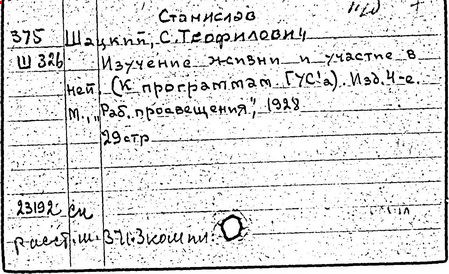 Станислав
375 Шацкий, С. Теофилович
Ш 326 Изучение жизни и участие в
ней. (К программам ГУС'а). Изд. 4-е.
М., „Раб. просвещения", 1928
29 стр
23192 сл
расст. ш. 371.3 ком пл.